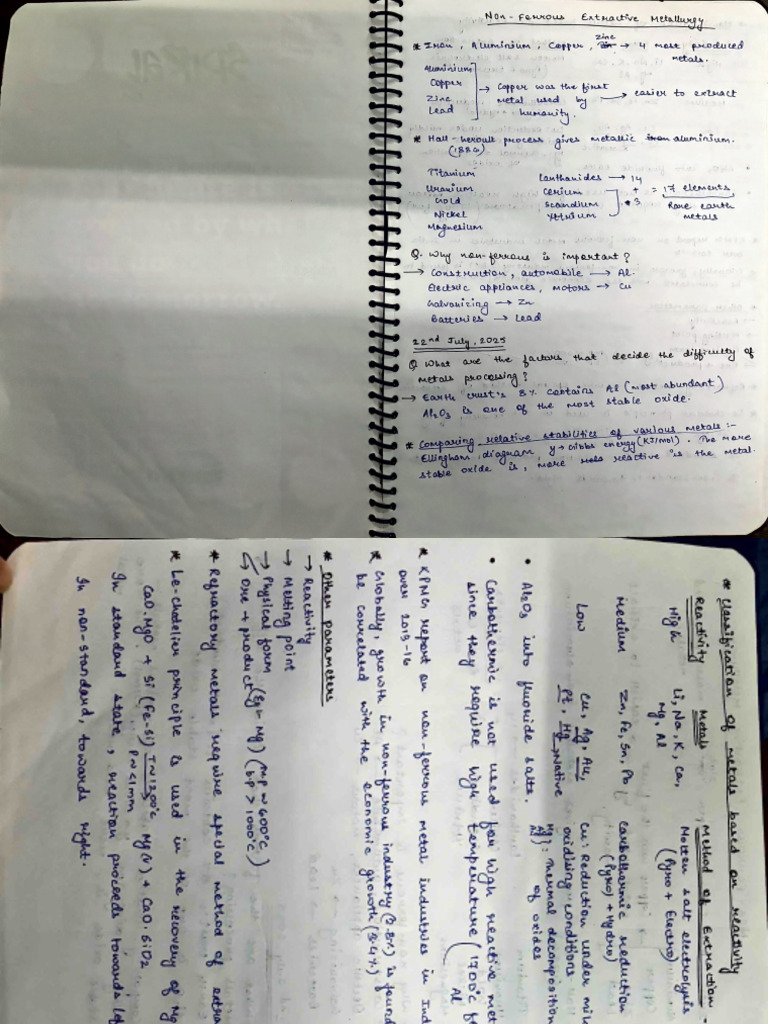 Non-Ferrous Extractive Metallurgy
* Iron, Aluminium, Copper, Zinc → 4 most produced
metals.
Aluminium
Copper
Zinc
Lead
→ Copper was the first
metal used by
humanity.
→ easier to extract
* Hall-heroult process gives metallic aluminium.
(1886)
Titanium
Uranium
Gold
Nickel
Magnesium
Lanthanides → 14
Cerium
Scandium
Yttrium
+
3
= 17 elements
Rare earth
metals
Q. Why non-ferrous is important?
→ Construction, automobile → Al.
Electric appliances, motors → Cu
Galvanizing → Zn
Batteries → Lead
22nd July, 2025
Q What are the factors that decide the difficulty of
metals processing?
→ Earth crust's 8% contains Al (most abundant)
Al2O3 is one of the most stable oxide.
* Comparing relative stabilities of various metals:-
Ellingham diagram, y → Gibbs energy (KJ/mol). The more
stable oxide is, more reactive is the metal.
* Classification of metals based on reactivity
Reactivity Metals Method of Extraction
High Li, Na, K, Ca, Molten salt electrolysis
Mg, Al (Pyro + Electro)
Medium Zn, Fe, Sn, Pb Carbothermic reduction
(Pyro) + Hydro)
Low Cu, Ag, Au, Cu: Reduction under
Pt, Hg oxidising conditions
→ Native : Thermal decomposition
of oxides
• Al2O3 into fluoride salts.
• Carbothermic is not used for high reactive
since they require high temperature (1700°C
Al
* KPMG report on non-ferrous metal industries in
over 2013-16
* Globally, growth in non-ferrous industry (3.8%) is found
be correlated with the economic growth (3.4%)
* Other parameters
→ Reactivity
→ Melting point
→ Physical form
→ Ore + product (Eg:- Mg) (mp ≈ 600°C)
(b.p > 1000°C)
* Refractory metals require special method of
* Le-chatelier principle is used in the recovery of Mg
CaO.MgO + Si (Fe-Si) T≈1200°C Mg(v) + CaO.SiO2
P≈<1mm
In standard state, reaction proceeds towards
In non-standard, towards right.